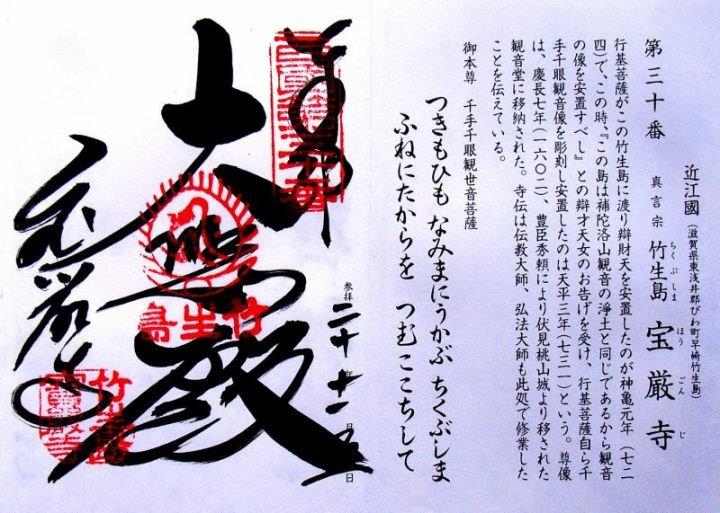 第三十番
近江國(滋賀県東浅井郡びわ町早崎竹生島)
真言宗 竹生島 宝厳寺
ちくぶしま ほうごんじ
行基菩薩がこの竹生島に渡り辯財天を安置したのが神亀元年(七二
四)で、この時『この島は補陀洛山観音の浄土と同じであるから観音
の像を安置すべし』との辯才天女のお告げを受け、行基菩薩自ら千
手千眼観音像を彫刻し安置したのは天平三年(七三一)という。尊像
は、慶長七年(一六〇二)、豊臣秀頼により伏見桃山城より移された
観音堂に移納された。寺伝は伝教大師、弘法大師も此処で修業した
ことを伝えている。
御本尊 千手千眼観世音菩薩
つきもひも なみまにうかぶ ちくぶしま
ふねにたからを つむここちして
奉拝
大悲殿
竹生島
参拝 二十年十一月 日
宝厳寺